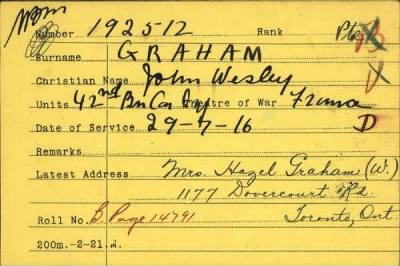 Number 192512 Rank Pte
Surname GRAHAM
Christian Name John Wesley
Units 42nd Bn Can Inf Theatre of War France
Date of Service 29-7-16 D
Remarks
Latest Address Mrs. Hazel Graham (W.)
1177 Dovercourt Rd.
Roll No. B. Page 14791 Toronto, Ont.
200m.-2-21.